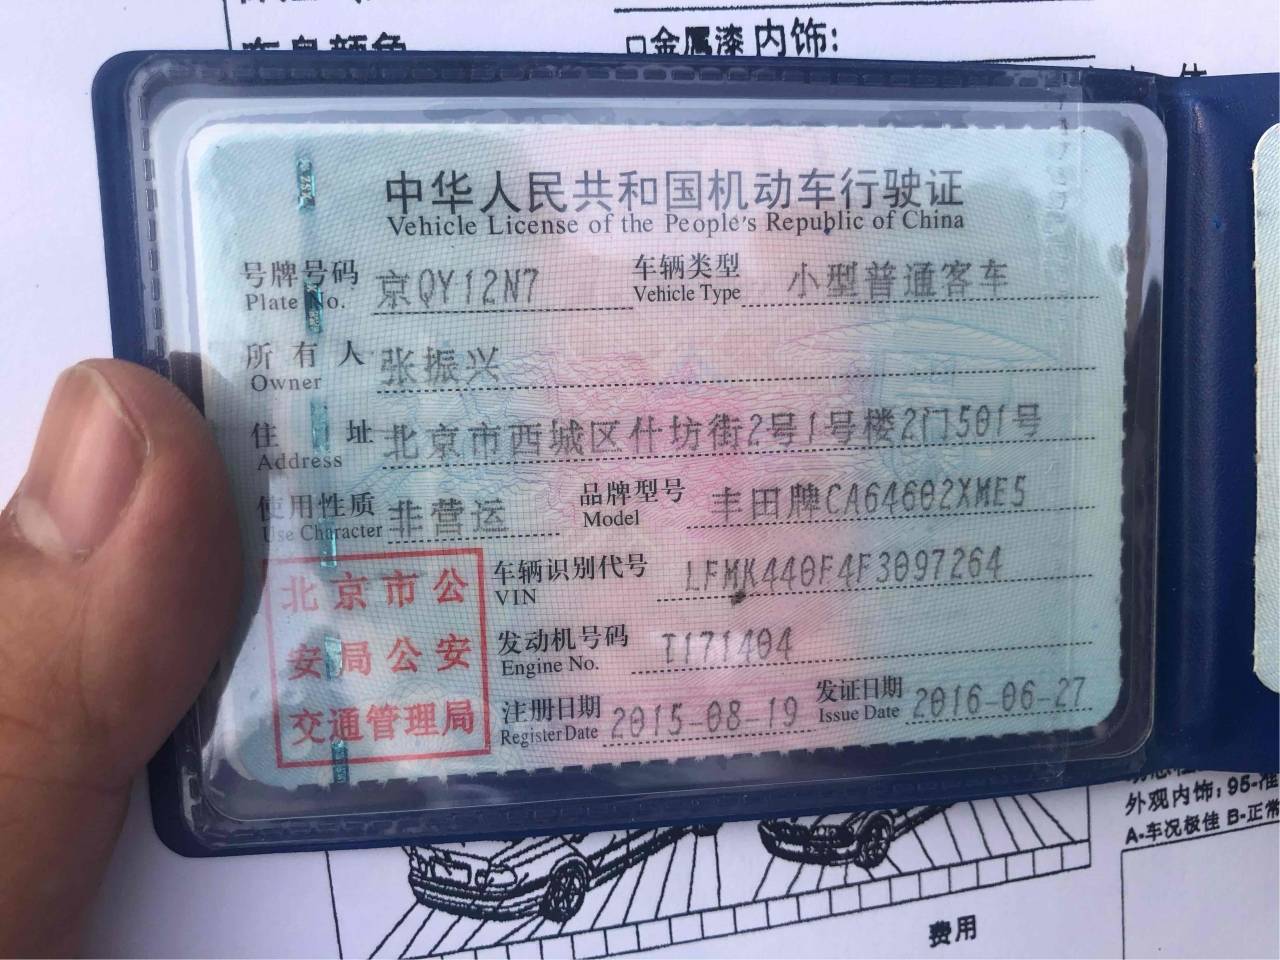 车身颜色
□金属漆 内饰:
中华人民共和国机动车行驶证
Vehicle License of the People's Republic of China
号牌号码 京QY12N7 车辆类型 小型普通客车
Plate No. Vehicle Type
所有人 张振兴
Owner
住址 北京市西城区什坊街2号1号楼2门501号
Address
使用性质 非营运 品牌型号 丰田牌CA64602XME5
Use Character Model
北京市公
安局公安
交通管理局
车辆识别代号 LFMK440F4F3097264
VIN
发动机号码 I171404
Engine No.
注册日期 2015-08-19 发证日期 2016-06-27
Register Date Issue Date
外观内饰: 95-准
A-车况极佳 B-正常
费用